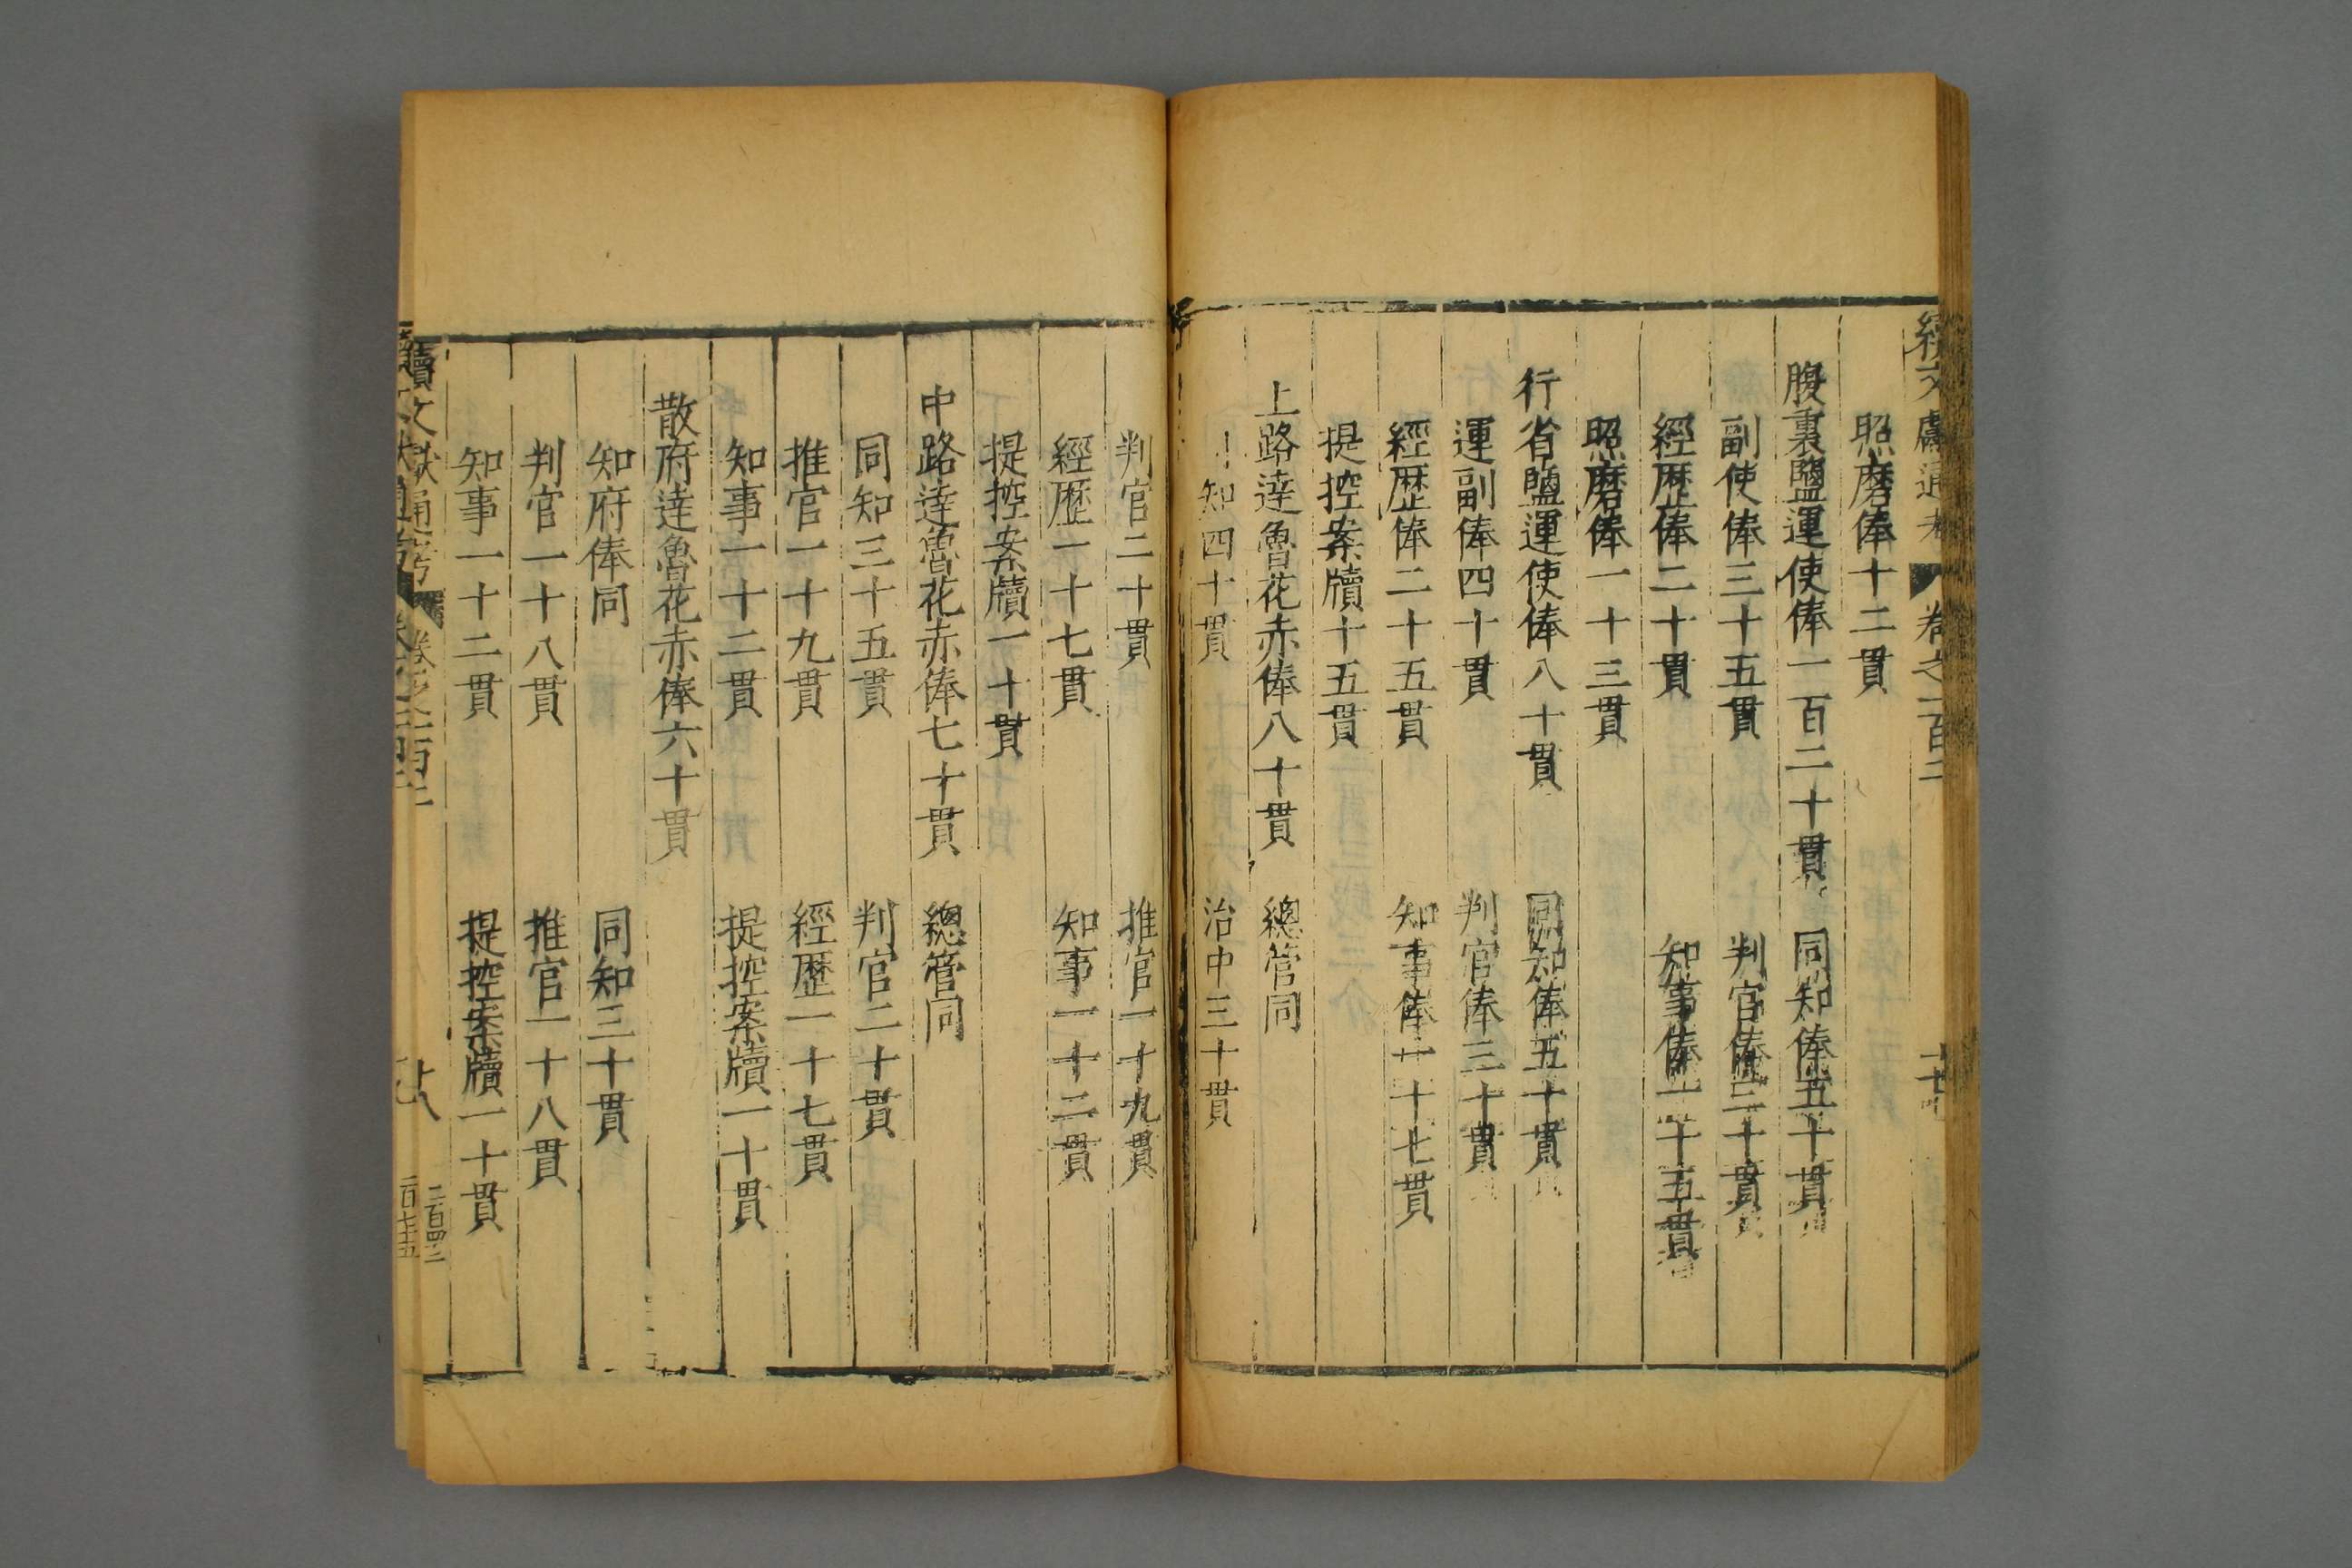 續文獻通考 卷之一百二
照磨俸十二貫
腹裏鹽運使俸一百二十貫 同知俸五十貫
副使俸三十五貫 判官俸三十貫
經歷俸二十貫 知事俸一十五貫
照磨俸一十三貫
行省鹽運使俸八十貫 同知俸五十貫
運副俸四十貫 判官俸三十貫
經歷俸二十五貫 知事俸一十七貫
提控案牘十五貫
上路達魯花赤俸八十貫 總管同
知四十貫 治中三十貫
判官二十貫 推官一十九貫
經歷一十七貫 知事一十二貫
提控案牘一十貫
中路達魯花赤俸七十貫 總管同
同知三十五貫 判官二十貫
推官一十九貫 經歷一十七貫
知事一十二貫 提控案牘一十貫
散府達魯花赤俸六十貫
知府俸同 同知三十貫
判官一十八貫 推官一十八貫
知事一十二貫 提控案牘一十貫
續文獻通考 卷之一百二 廿八